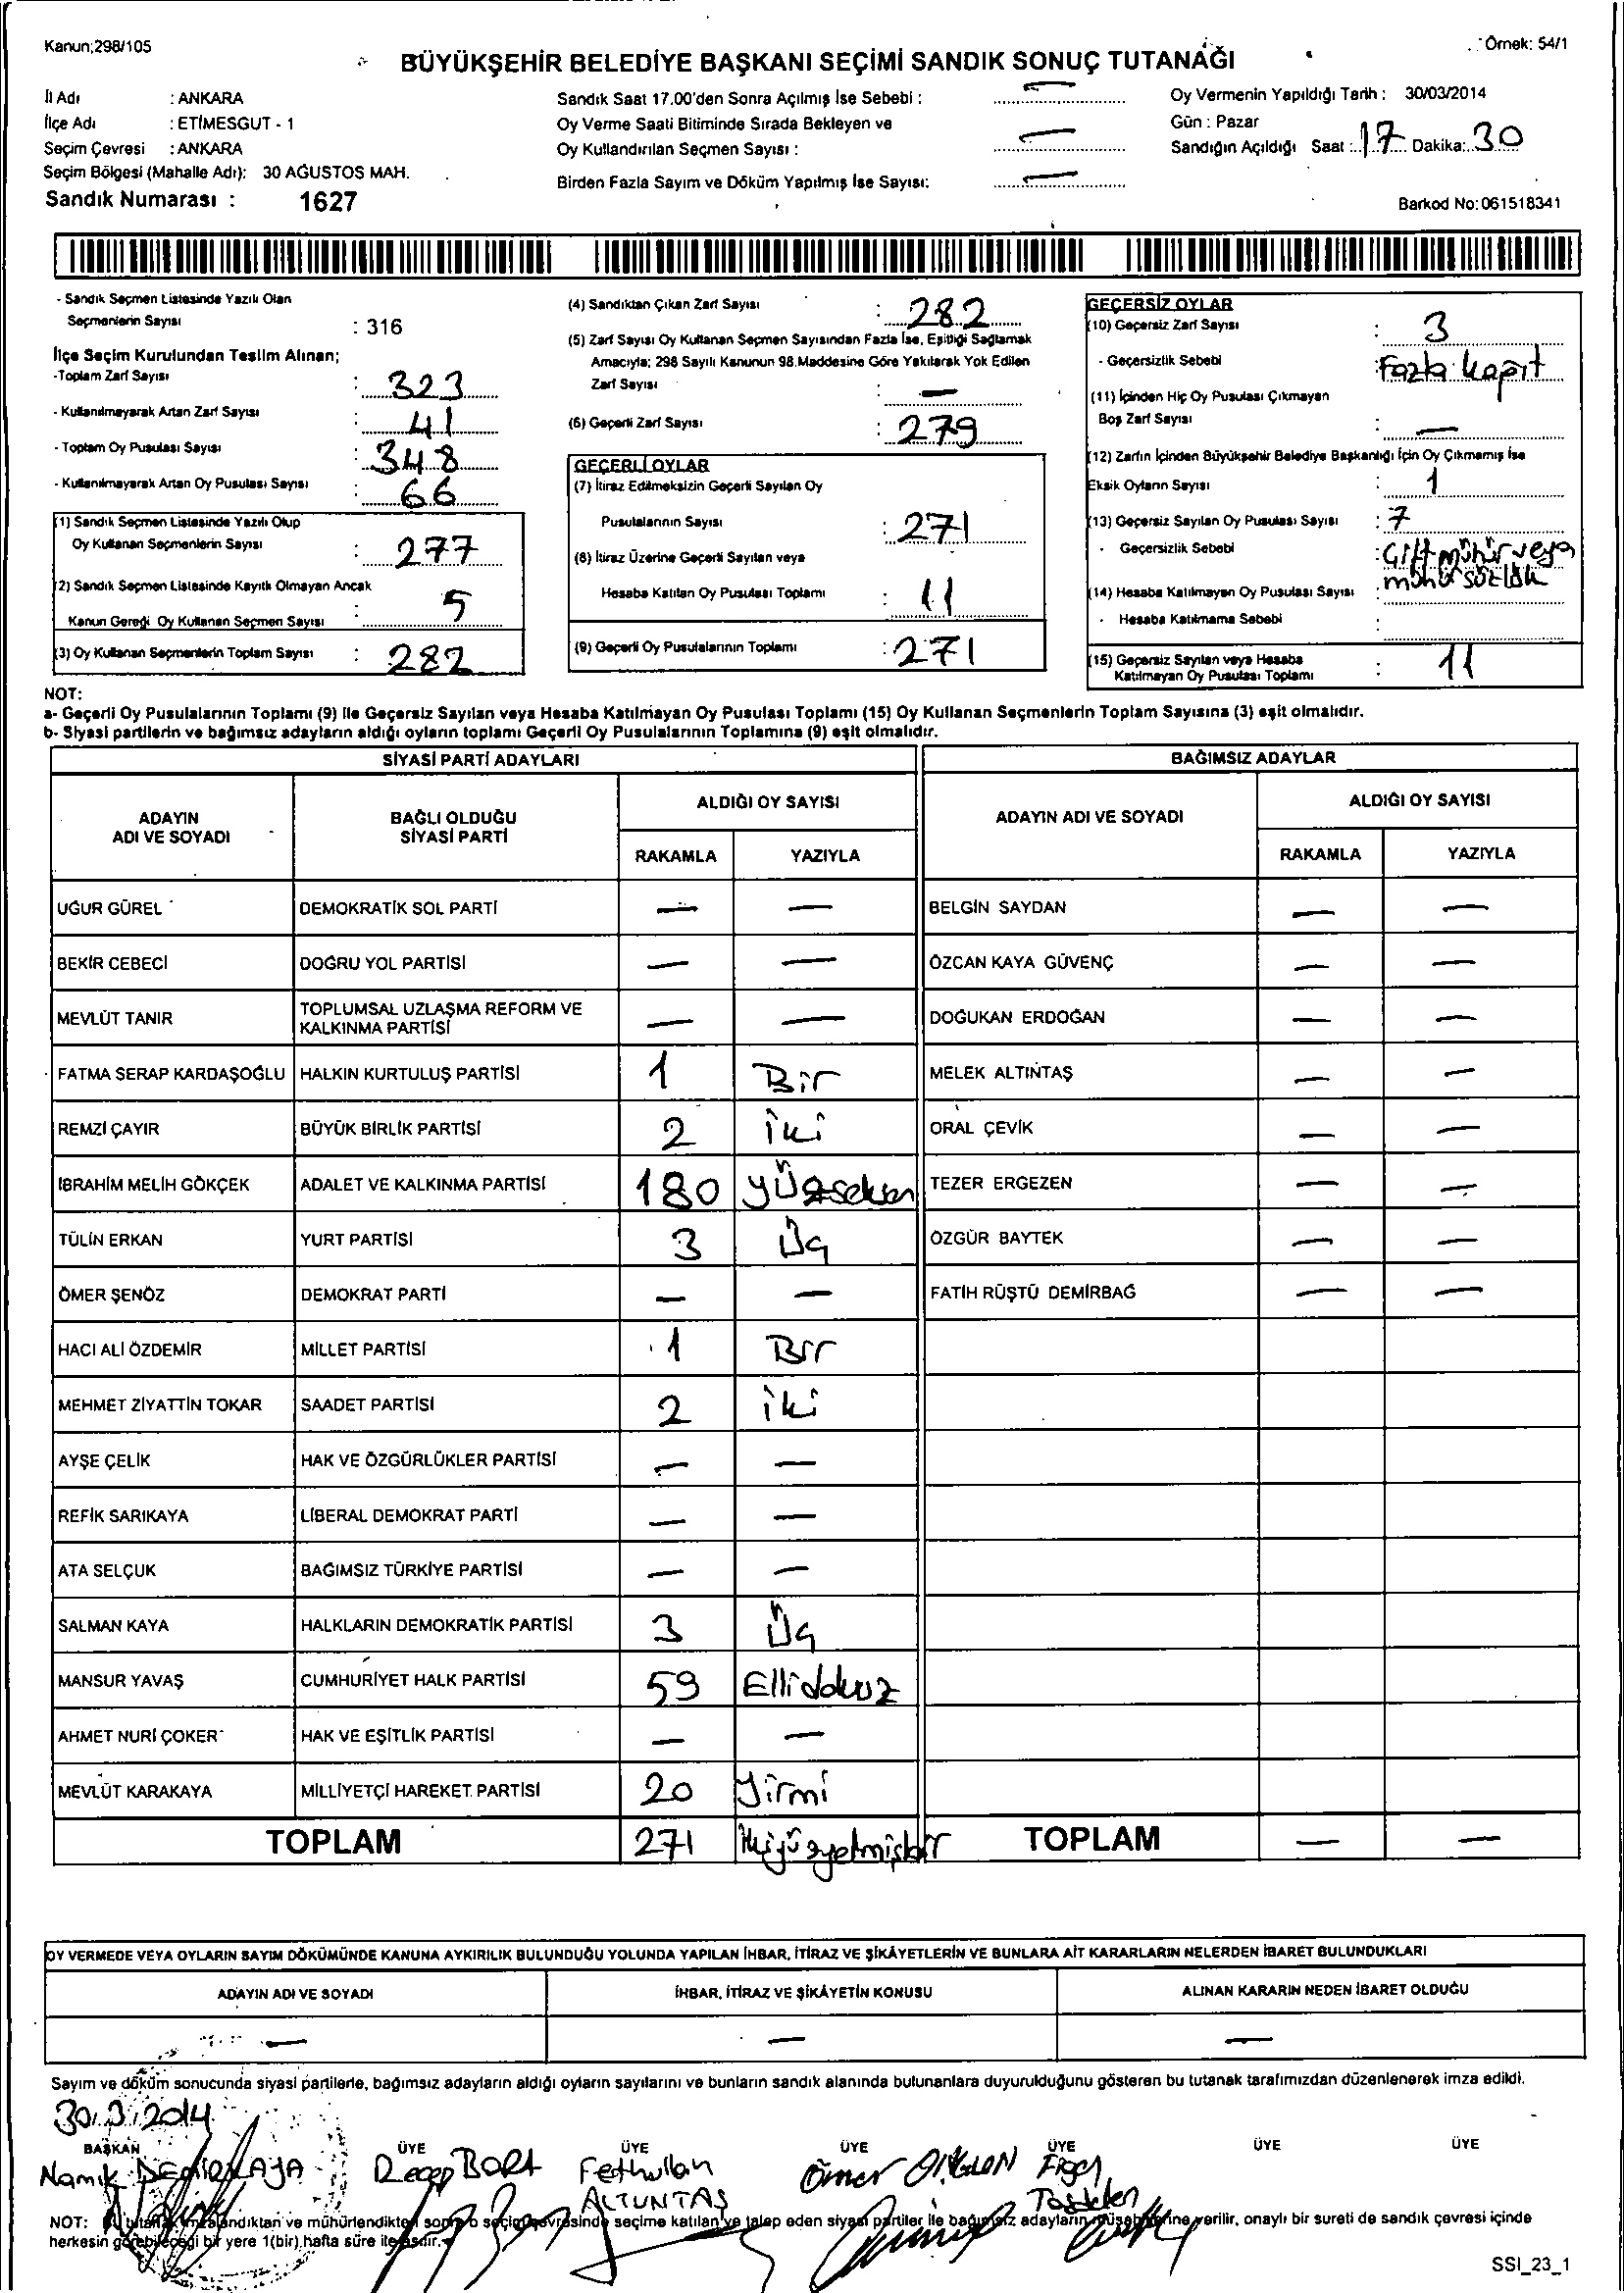 Kanun;298/105
Örnek: 54/1
BÜYÜKŞEHİR BELEDİYE BAŞKANI SEÇİMİ SANDIK SONUÇ TUTANAĞI
İl Adı : ANKARA
İlçe Adı : ETİMESGUT - 1
Seçim Çevresi : ANKARA
Seçim Bölgesi (Mahalle Adı): 30 AĞUSTOS MAH.
Sandık Numarası : 1627
Sandık Saat 17.00'den Sonra Açılmış İse Sebebi : —
Oy Verme Saati Bitiminde Sırada Bekleyen ve
Oy Kullandırılan Seçmen Sayısı : —
Birden Fazla Sayım ve Döküm Yapılmış İse Sayısı: —
Oy Vermenin Yapıldığı Tarih : 30/03/2014
Gün : Pazar
Sandığın Açıldığı Saat : 17 Dakika: 30
Barkod No: 061518341
- Sandık Seçmen Listesinde Yazılı Olan
Seçmenlerin Sayısı : 316
İlçe Seçim Kurulundan Teslim Alınan;
-Toplam Zarf Sayısı : 323
- Kullanılmayarak Artan Zarf Sayısı : 41
- Toplam Oy Pusulası Sayısı : 348
- Kullanılmayarak Artan Oy Pusulası Sayısı : 66
(1) Sandık Seçmen Listesinde Yazılı Olup
Oy Kullanan Seçmenlerin Sayısı : 277
(2) Sandık Seçmen Listesinde Kayıtlı Olmayan Ancak
Kanun Gereği Oy Kullanan Seçmen Sayısı : 5
(3) Oy Kullanan Seçmenlerin Toplam Sayısı : 282
(4) Sandıktan Çıkan Zarf Sayısı : 282
(5) Zarf Sayısı Oy Kullanan Seçmen Sayısından Fazla İse, Eşitliği Sağlamak
Amacıyla; 298 Sayılı Kanunun 98.Maddesine Göre Yakılarak Yok Edilen
Zarf Sayısı : —
(6) Geçerli Zarf Sayısı : 279
GEÇERLİ OYLAR
(7) İtiraz Edilmeksizin Geçerli Sayılan Oy
Pusulalarının Sayısı : 271
(8) İtiraz Üzerine Geçerli Sayılan veya
Hesaba Katılan Oy Pusulası Toplamı : 11
(9) Geçerli Oy Pusulalarının Toplamı : 271
GEÇERSİZ OYLAR
(10) Geçersiz Zarf Sayısı : 3
- Geçersizlik Sebebi : Fazla kağıt
(11) İçinden Hiç Oy Pusulası Çıkmayan
Boş Zarf Sayısı : —
(12) Zarfın İçinden Büyükşehir Belediye Başkanlığı İçin Oy Çıkmamış İse
Eksik Oyların Sayısı : 1
(13) Geçersiz Sayılan Oy Pusulası Sayısı : 7
- Geçersizlik Sebebi : Çift mühür veya
mühürsüzlük
(14) Hesaba Katılmayan Oy Pusulası Sayısı :
- Hesaba Katılmama Sebebi :
(15) Geçersiz Sayılan veya Hesaba
Katılmayan Oy Pusulası Toplamı : 11
NOT:
a- Geçerli Oy Pusulalarının Toplamı (9) ile Geçersiz Sayılan veya Hesaba Katılmayan Oy Pusulası Toplamı (15) Oy Kullanan Seçmenlerin Toplam Sayısına (3) eşit olmalıdır.
b- Siyasi partilerin ve bağımsız adayların aldığı oyların toplamı Geçerli Oy Pusulalarının Toplamına (9) eşit olmalıdır.
SİYASİ PARTİ ADAYLARI BAĞIMSIZ ADAYLAR
ADAYIN
ADI VE SOYADI
BAĞLI OLDUĞU
SİYASİ PARTİ
ALDIĞI OY SAYISI
RAKAMLA YAZIYLA
ADAYIN ADI VE SOYADI
ALDIĞI OY SAYISI
RAKAMLA YAZIYLA
UĞUR GÜREL DEMOKRATİK SOL PARTİ — — BELGİN SAYDAN — —
BEKİR CEBECİ DOĞRU YOL PARTİSİ — — ÖZCAN KAYA GÜVENÇ — —
MEVLÜT TANIR TOPLUMSAL UZLAŞMA REFORM VE
KALKINMA PARTİSİ — — DOĞUKAN ERDOĞAN — —
FATMA SERAP KARDAŞOĞLU HALKIN KURTULUŞ PARTİSİ 1 Bir MELEK ALTINTAŞ — —
REMZİ ÇAYIR BÜYÜK BİRLİK PARTİSİ 2 iki ORAL ÇEVİK — —
İBRAHİM MELİH GÖKÇEK ADALET VE KALKINMA PARTİSİ 180 yüzseksen TEZER ERGEZEN — —
TÜLİN ERKAN YURT PARTİSİ 3 Üç ÖZGÜR BAYTEK — —
ÖMER ŞENÖZ DEMOKRAT PARTİ — — FATİH RÜŞTÜ DEMİRBAĞ — —
HACI ALİ ÖZDEMİR MİLLET PARTİSİ 1 Bir
MEHMET ZİYATTİN TOKAR SAADET PARTİSİ 2 iki
AYŞE ÇELİK HAK VE ÖZGÜRLÜKLER PARTİSİ — —
REFİK SARIKAYA LİBERAL DEMOKRAT PARTİ — —
ATA SELÇUK BAĞIMSIZ TÜRKİYE PARTİSİ — —
SALMAN KAYA HALKLARIN DEMOKRATİK PARTİSİ 3 Üç
MANSUR YAVAŞ CUMHURİYET HALK PARTİSİ 59 Ellidokuz
AHMET NURİ ÇOKER HAK VE EŞİTLİK PARTİSİ — —
MEVLÜT KARAKAYA MİLLİYETÇİ HAREKET PARTİSİ 20 Yirmi
TOPLAM 271 ikiyüzyetmişbir TOPLAM — —
OY VERMEDE VEYA OYLARIN SAYIM DÖKÜMÜNDE KANUNA AYKIRILIK BULUNDUĞU YOLUNDA YAPILAN İHBAR, İTİRAZ VE ŞİKÂYETLERİN VE BUNLARA AİT KARARLARIN NELERDEN İBARET BULUNDUKLARI
ADAYIN ADI VE SOYADI İHBAR, İTİRAZ VE ŞİKÂYETİN KONUSU ALINAN KARARIN NEDEN İBARET OLDUĞU
— — —
Sayım ve döküm sonucunda siyasi partilerle, bağımsız adayların aldığı oyların sayılarını ve bunların sandık alanında bulunanlara duyurulduğunu gösteren bu tutanak tarafımızdan düzenlenerek imza edildi.
30.3.2014
BAŞKAN ÜYE ÜYE ÜYE ÜYE ÜYE ÜYE
Namık DEMİRKAYA Recep BORA Fethullah Ömer
ALTUNTAŞ Taşdelen
NOT: Bu tutanak imzalandıktan ve mühürlendikten sonra o seçim çevresinde seçime katılan ve talep eden siyasi partiler ile bağımsız adayların müşahitlerine verilir, onaylı bir sureti de sandık çevresi içinde
herkesin görebileceği bir yere 1(bir) hafta süre ile asılır.
SSI_23_1